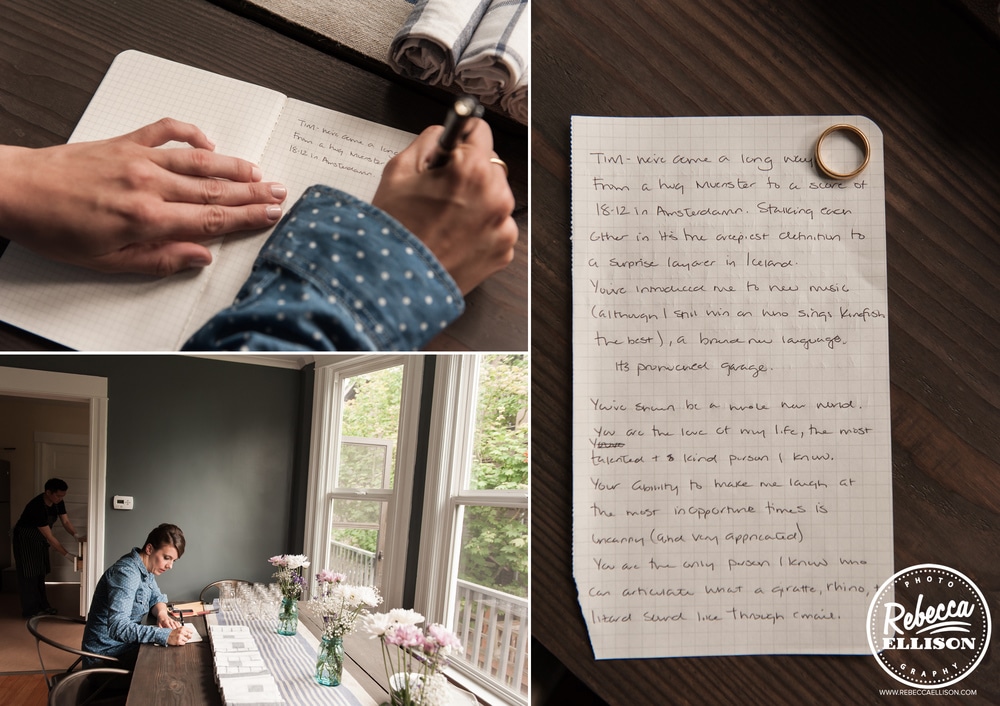 TIM- we've come a long
From a hug Muenster
18-12 in Amsterdamn.
TIM- we've come a long way
From a hug Muenster to a score of
18-12 in Amsterdamn. Stalking each
other in it's true creepiest definition to
a surprise layover in Iceland.
You've introduced me to new music
(although I still win on who sings Kingfish
the best), a brand new language.
It's pronounced garage.
You've shown be a whole new world.
You are the love of my life, the most
talented + kind person I know.
Your ability to make me laugh at
the most inopportune times is
uncanny (and very appricated)
You are the only person I know who
can articulate what a giraffe, rhino, +
lizard sound like through email.
PHOTO
Rebecca
ELLISON
GRAPHY
WWW.REBECCAELLISON.COM